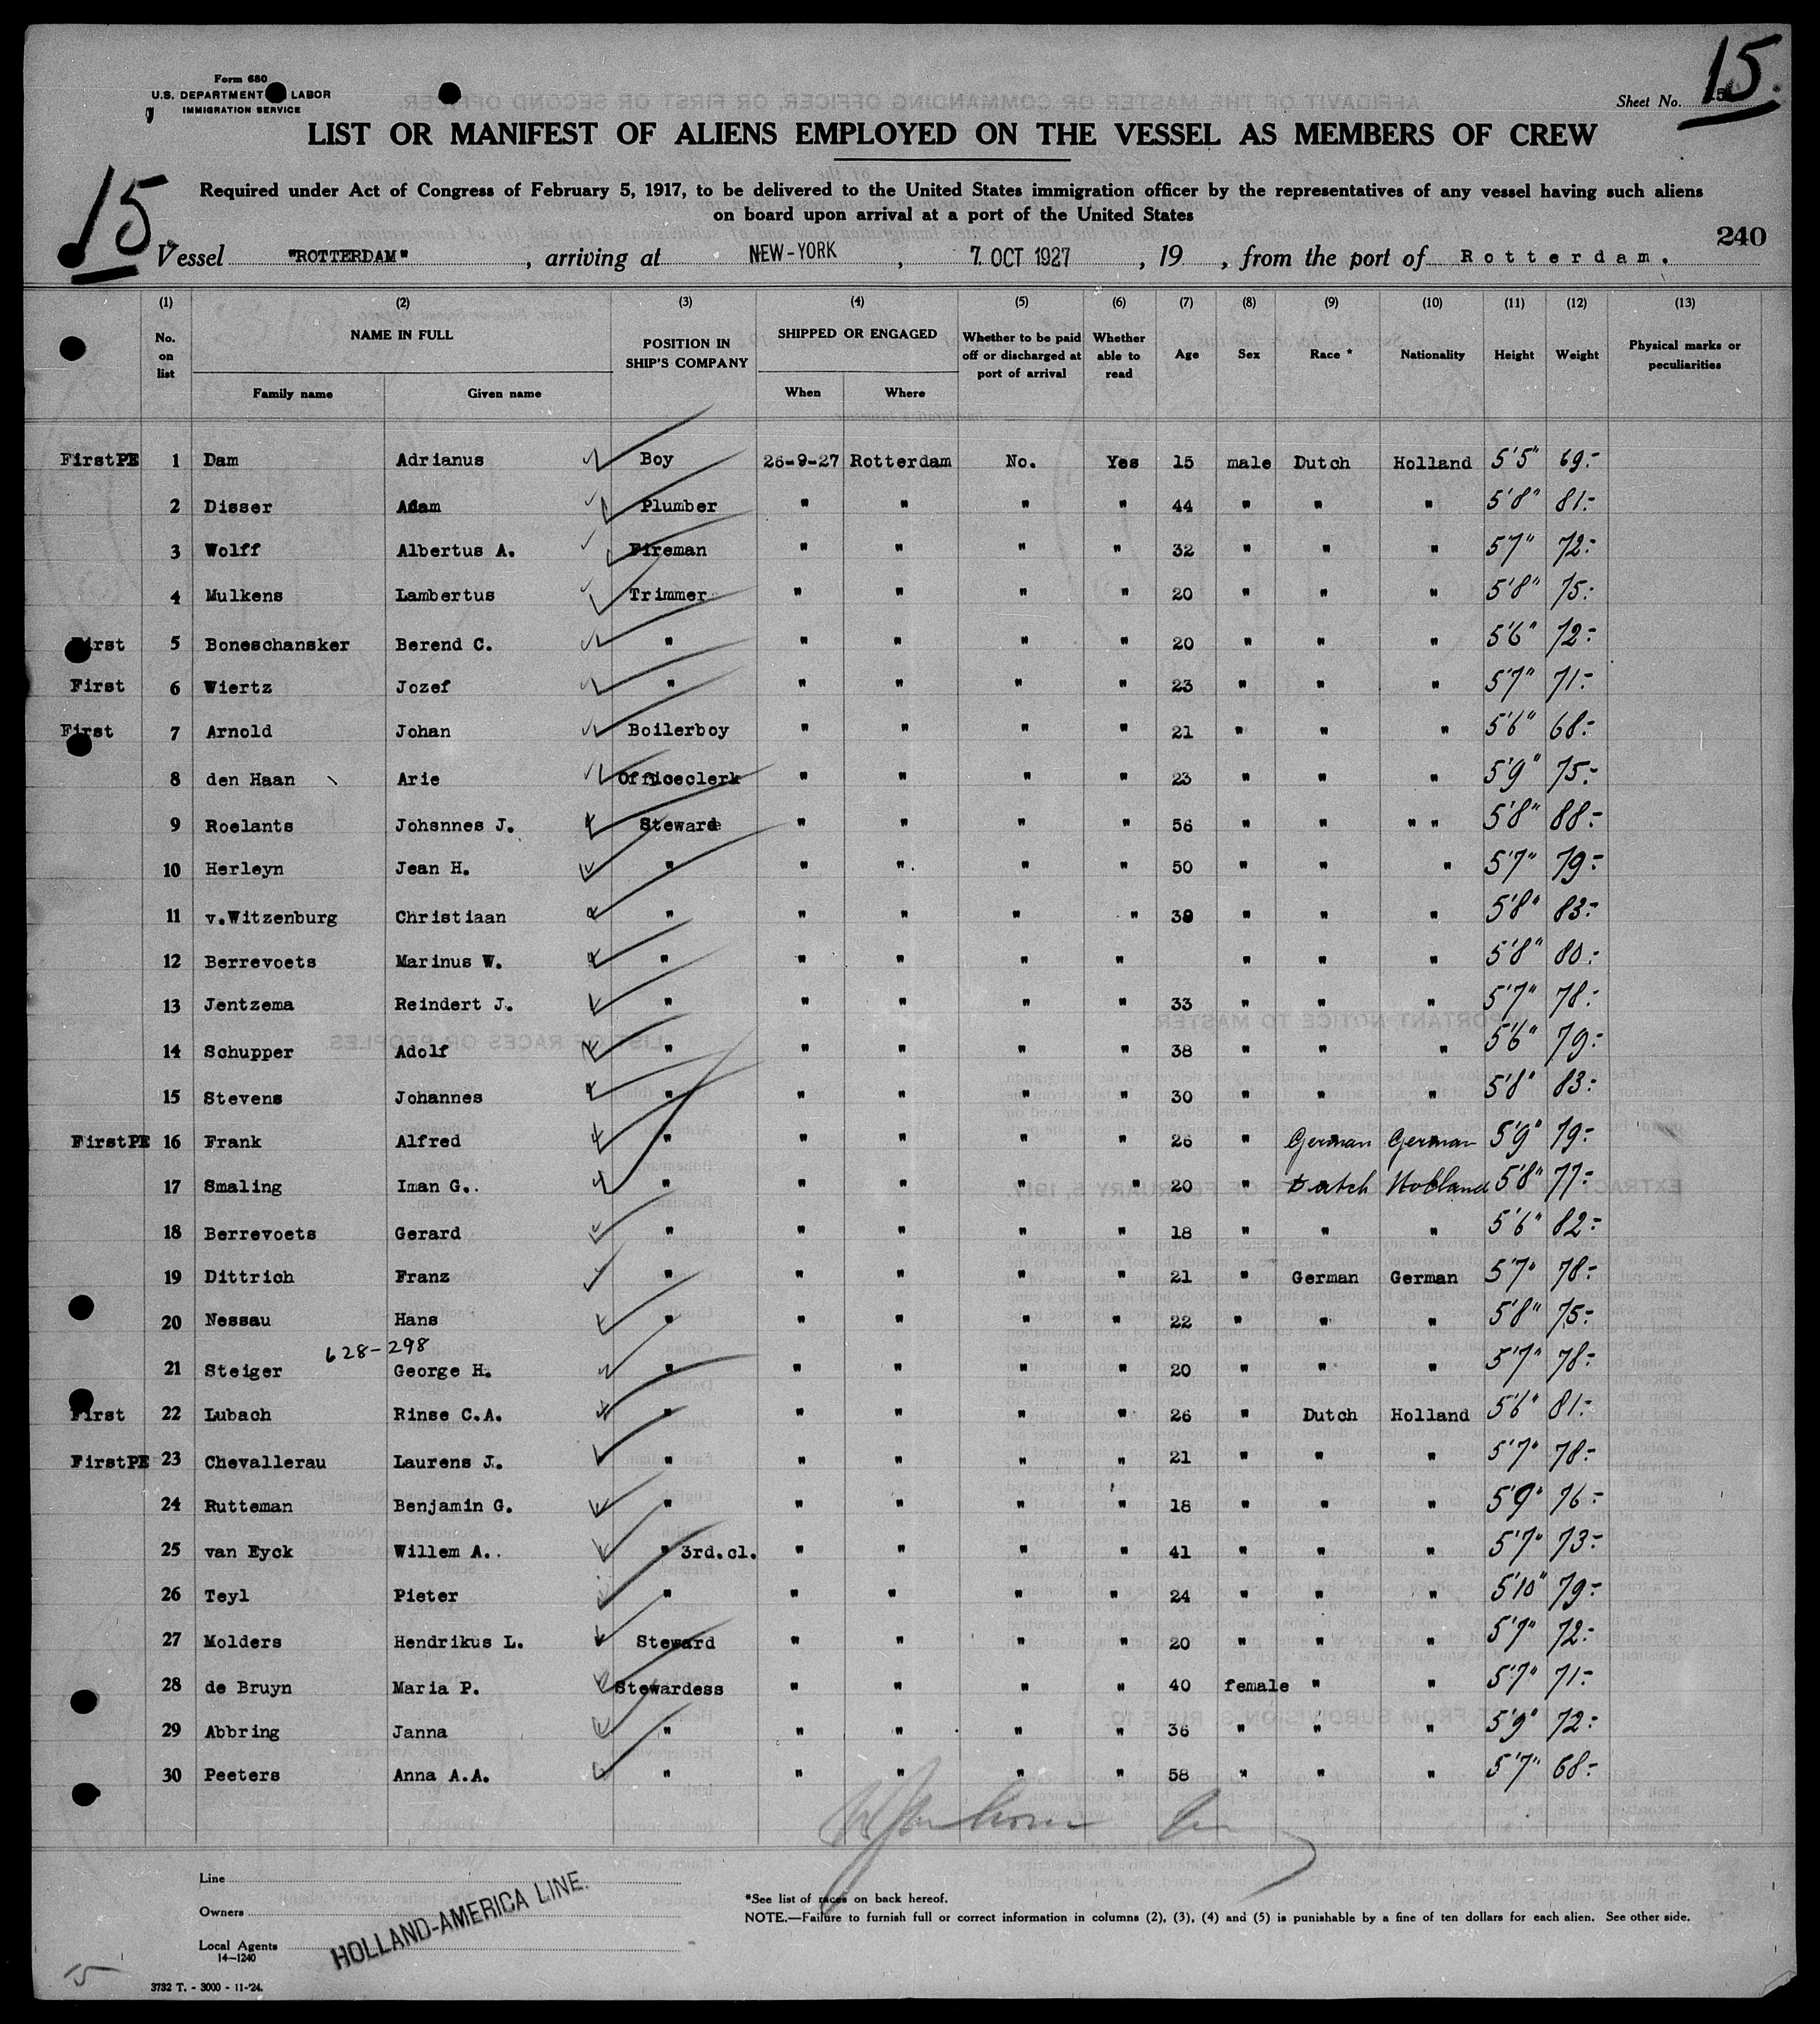 Form 680
U.S. DEPARTMENT LABOR
IMMIGRATION SERVICE
15.
Sheet No.
LIST OR MANIFEST OF ALIENS EMPLOYED ON THE VESSEL AS MEMBERS OF CREW
15.
Required under Act of Congress of February 5, 1917, to be delivered to the United States immigration officer by the representatives of any vessel having such aliens
on board upon arrival at a port of the United States
240
Vessel "ROTTERDAM", arriving at NEW-YORK, 7 OCT 1927, 19 , from the port of Rotterdam.
(1) (2) (3) (4) (5) (6) (7) (8) (9) (10) (11) (12) (13)
No. on list NAME IN FULL Family name Given name POSITION IN SHIP'S COMPANY SHIPPED OR ENGAGED When Where Whether to be paid off or discharged at port of arrival Whether able to read Age Sex Race * Nationality Height Weight Physical marks or peculiarities
FirstPE 1 Dam Adrianus Boy 26-9-27 Rotterdam No. Yes 15 male Dutch Holland 5'5" 69.-
2 Disser Adam Plumber " " " " 44 " " " 5'8" 81.-
3 Wolff Albertus A. Fireman " " " " 32 " " " 5'7" 72.-
4 Mulkens Lambertus Trimmer " " " " 20 " " " 5'8" 75.-
First 5 Boneschansker Berend C. " " " " " 20 " " " 5'6" 72.-
First 6 Wiertz Jozef " " " " " 23 " " " 5'7" 71.-
First 7 Arnold Johan Boilerboy " " " " 21 " " " 5'6" 68.-
8 den Haan Arie Officeclerk " " " " 23 " " " 5'9" 75.-
9 Roelants Johsnnes J. Steward " " " " 56 " " " " 5'8" 88.-
10 Herleyn Jean H. " " " " " 50 " " " 5'7" 79.-
11 v.Witzenburg Christiaan " " " " " " " " 5'8" 83.-
12 Berrevoets Marinus W. " " " " " " " " 5'8" 80.-
13 Jentzema Reindert J. " " " " " 33 " " " 5'7" 78.-
14 Schupper Adolf " " " " " 38 " " " 5'6" 79.-
15 Stevens Johannes " " " " " 30 " " " 5'8" 83.-
FirstPE 16 Frank Alfred " " " " " 26 " German German 5'9" 79.-
17 Smaling Iman G. " " " " " 20 " Dutch Holland 5'8" 77.-
18 Berrevoets Gerard " " " " " 18 " " " 5'6" 82.-
19 Dittrich Franz " " " " " 21 " German German 5'7" 78.-
20 Nessau Hans " " " " " 22 " " " 5'8" 75.-
628-298
21 Steiger George H. " " " " 20 " " " 5'7" 78.-
First 22 Lubach Rinse C.A. " " " " " 26 " Dutch Holland 5'6" 81.-
FirstPE 23 Chevallerau Laurens J. " " " " " 21 " " " 5'7" 78.-
24 Rutteman Benjamin G. " " " " " 18 " " " 5'9" 76.-
25 van Eyck Willem A. " 3rd.cl. " " " " 41 " " " 5'7" 73.-
26 Teyl Pieter " " " " " 24 " " " 5'10" 79.-
27 Molders Hendrikus L. Steward " " " " 20 " " " 5'7" 72.-
28 de Bruyn Maria P. Stewardess " " " " 40 female " " 5'7" 71.-
29 Abbring Janna " " " " " 36 " " " 5'9" 72.-
30 Peeters Anna A.A. " " " " " 58 " " " 5'7" 68.-
Line
Owners
Local Agents
HOLLAND-AMERICA LINE.
14—1240
*See list of races on back hereof.
NOTE.—Failure to furnish full or correct information in columns (2), (3), (4) and (5) is punishable by a fine of ten dollars for each alien. See other side.
15
3732 T. - 3000 - 11-'24.